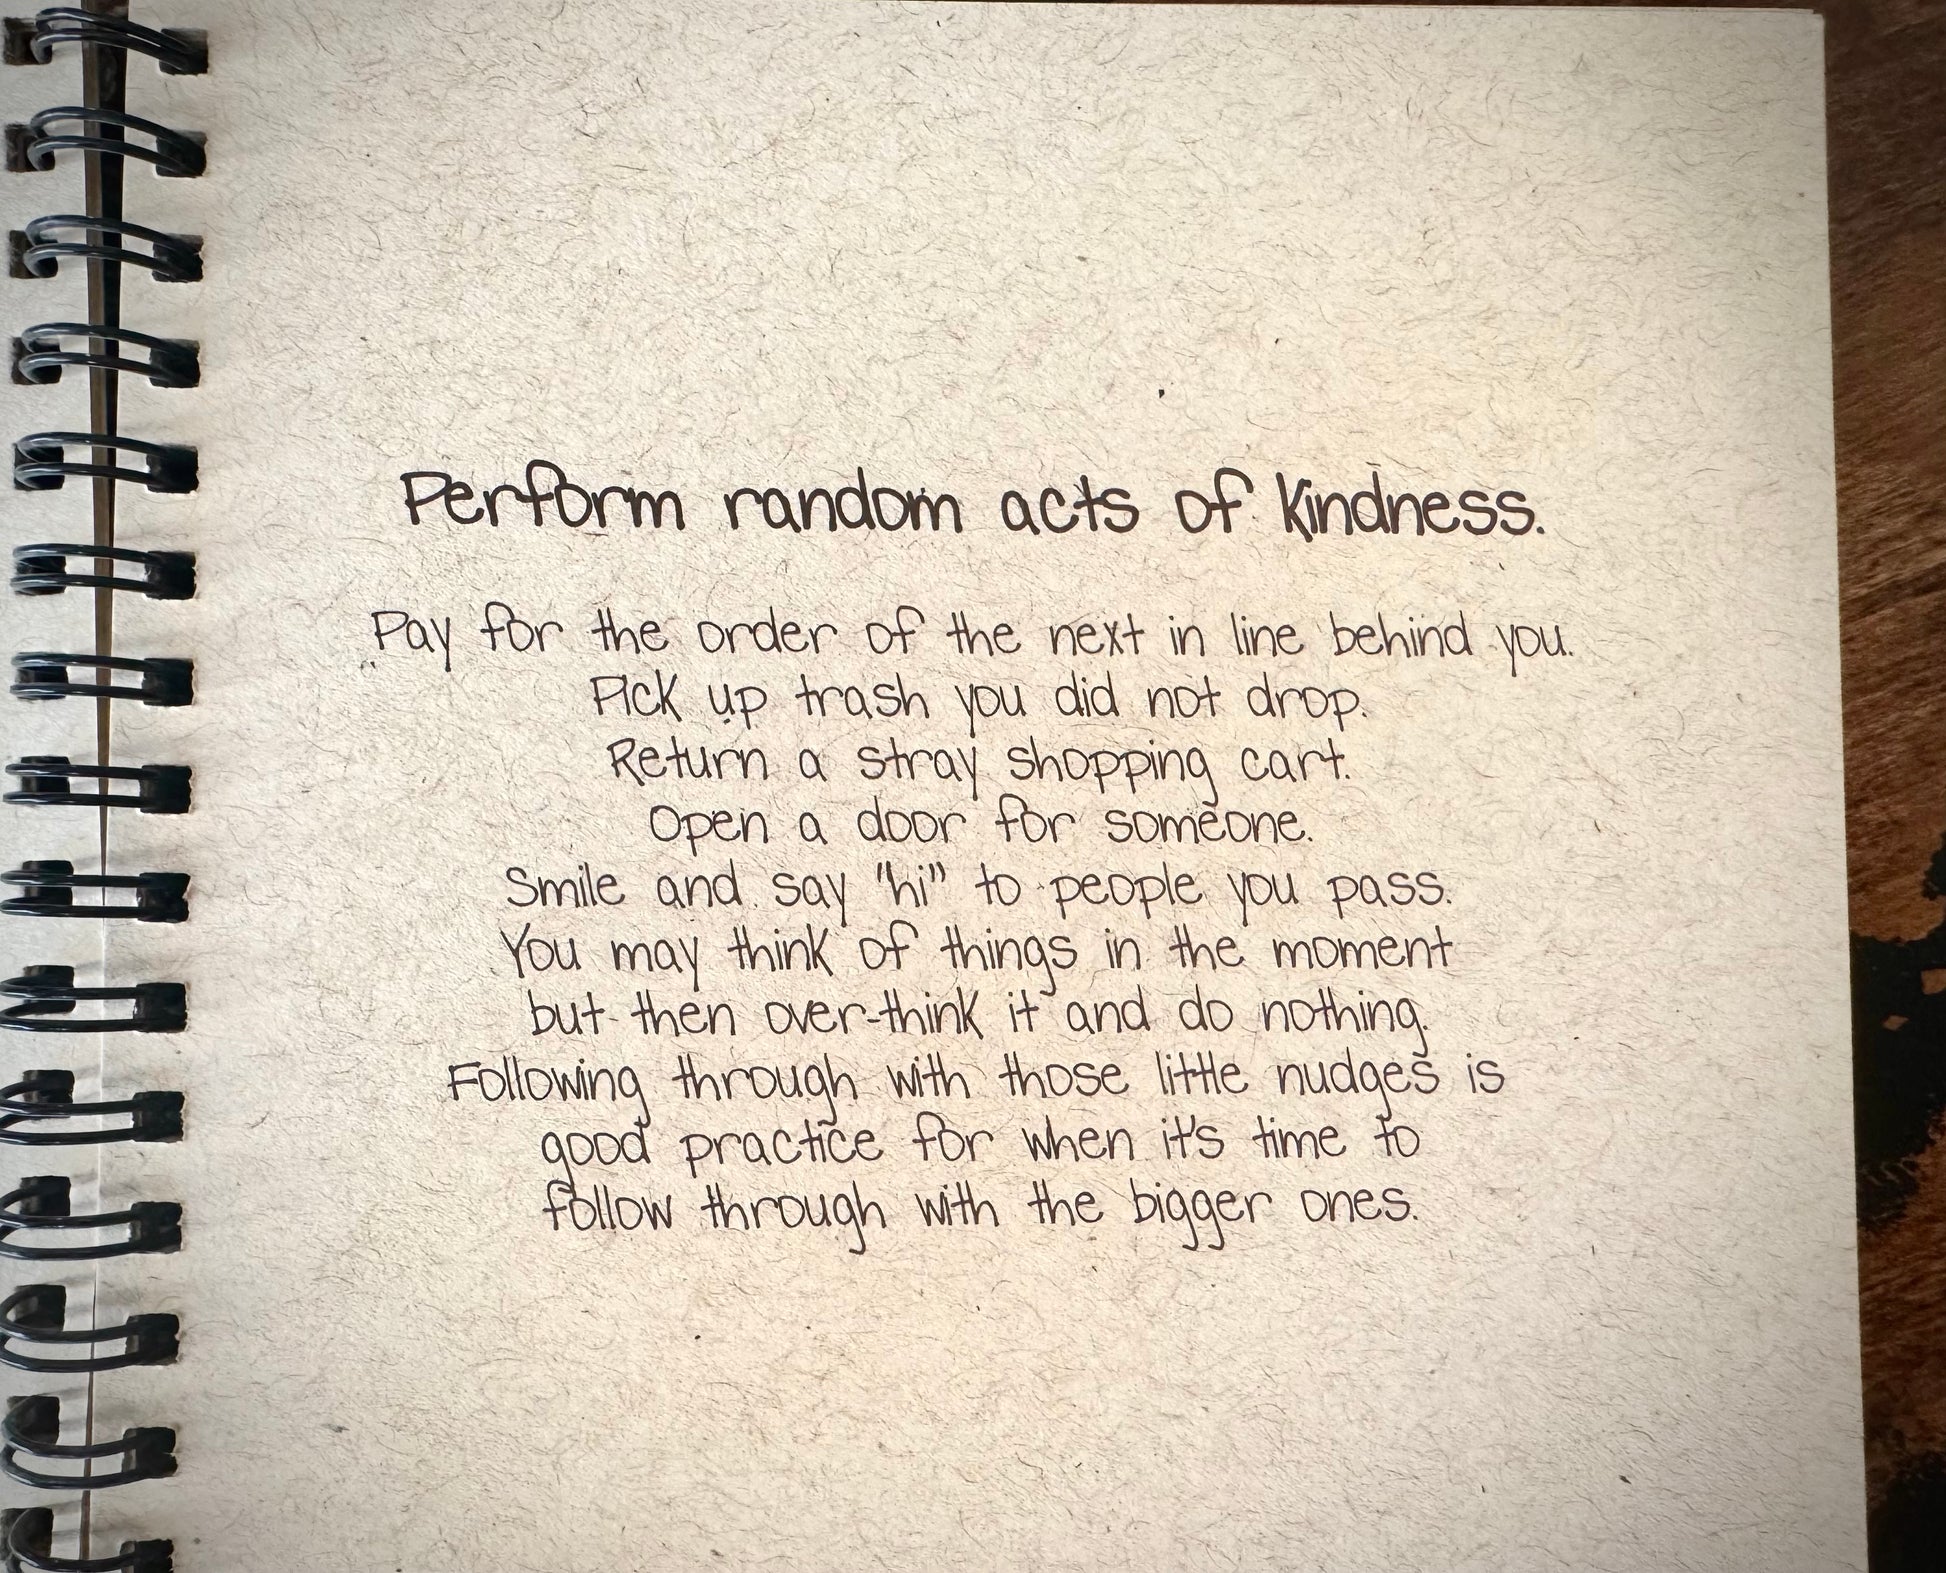 Perform random acts of kindness.
Pay for the order of the next in line behind you.
Pick up trash you did not drop.
Return a stray shopping cart.
Open a door for someone.
Smile and say "hi" to people you pass.
You may think of things in the moment
but then over-think it and do nothing.
Following through with those little nudges is
good practice for when it's time to
follow through with the bigger ones.